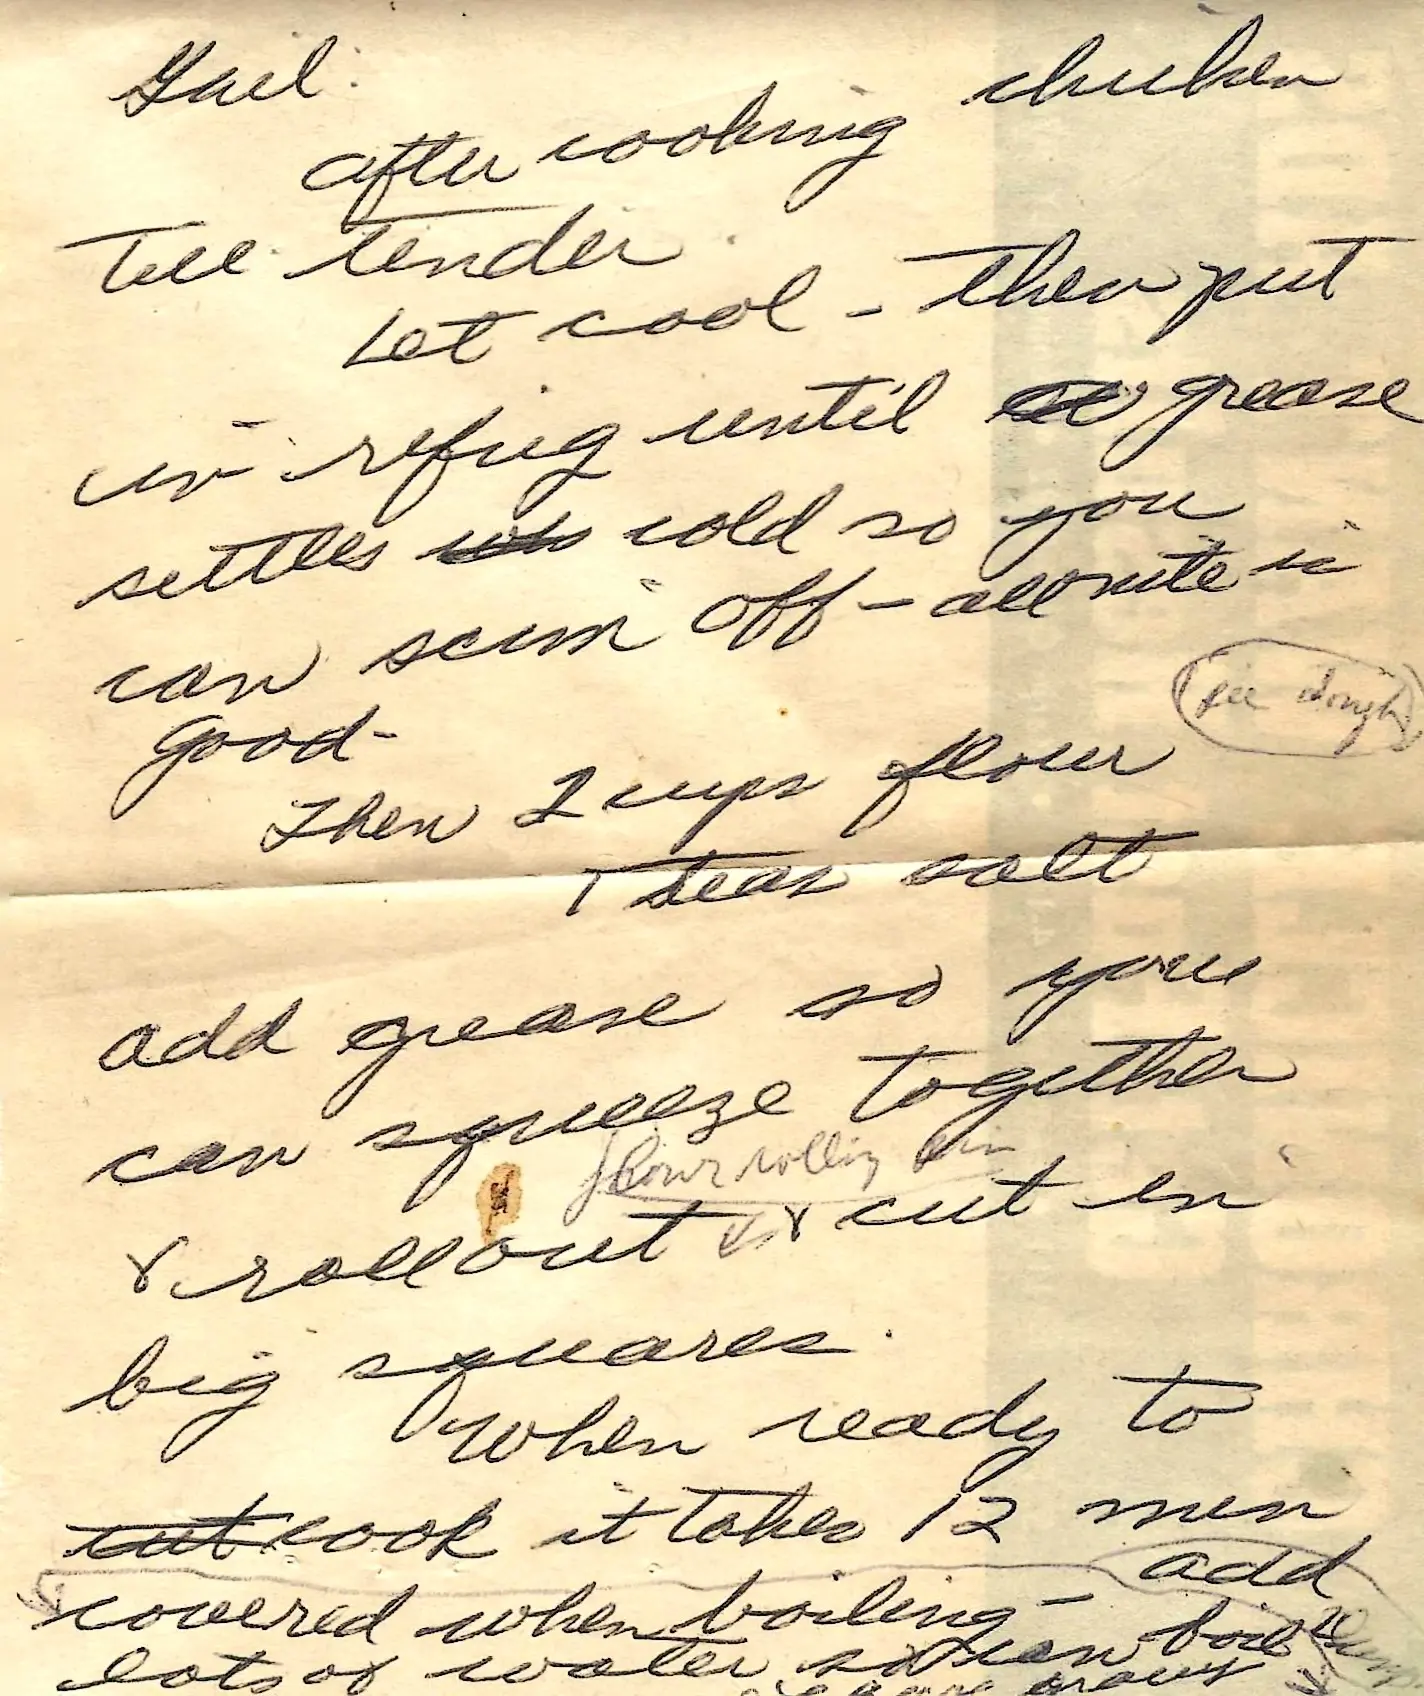 Gail:
after cooking chicken
Till tender
Let cool - Then put
in refrig until grease
settles cold so you
can scim off - allnite is
good -
(pie dough)
Then 2 cups flour
1 teas salt
add grease so you
can squeeze together
flour rolling pin
& roll out & & cut in
big squares.
When ready to
cut cook it takes 12 min
add
covered when boiling -
lots of water so can boil